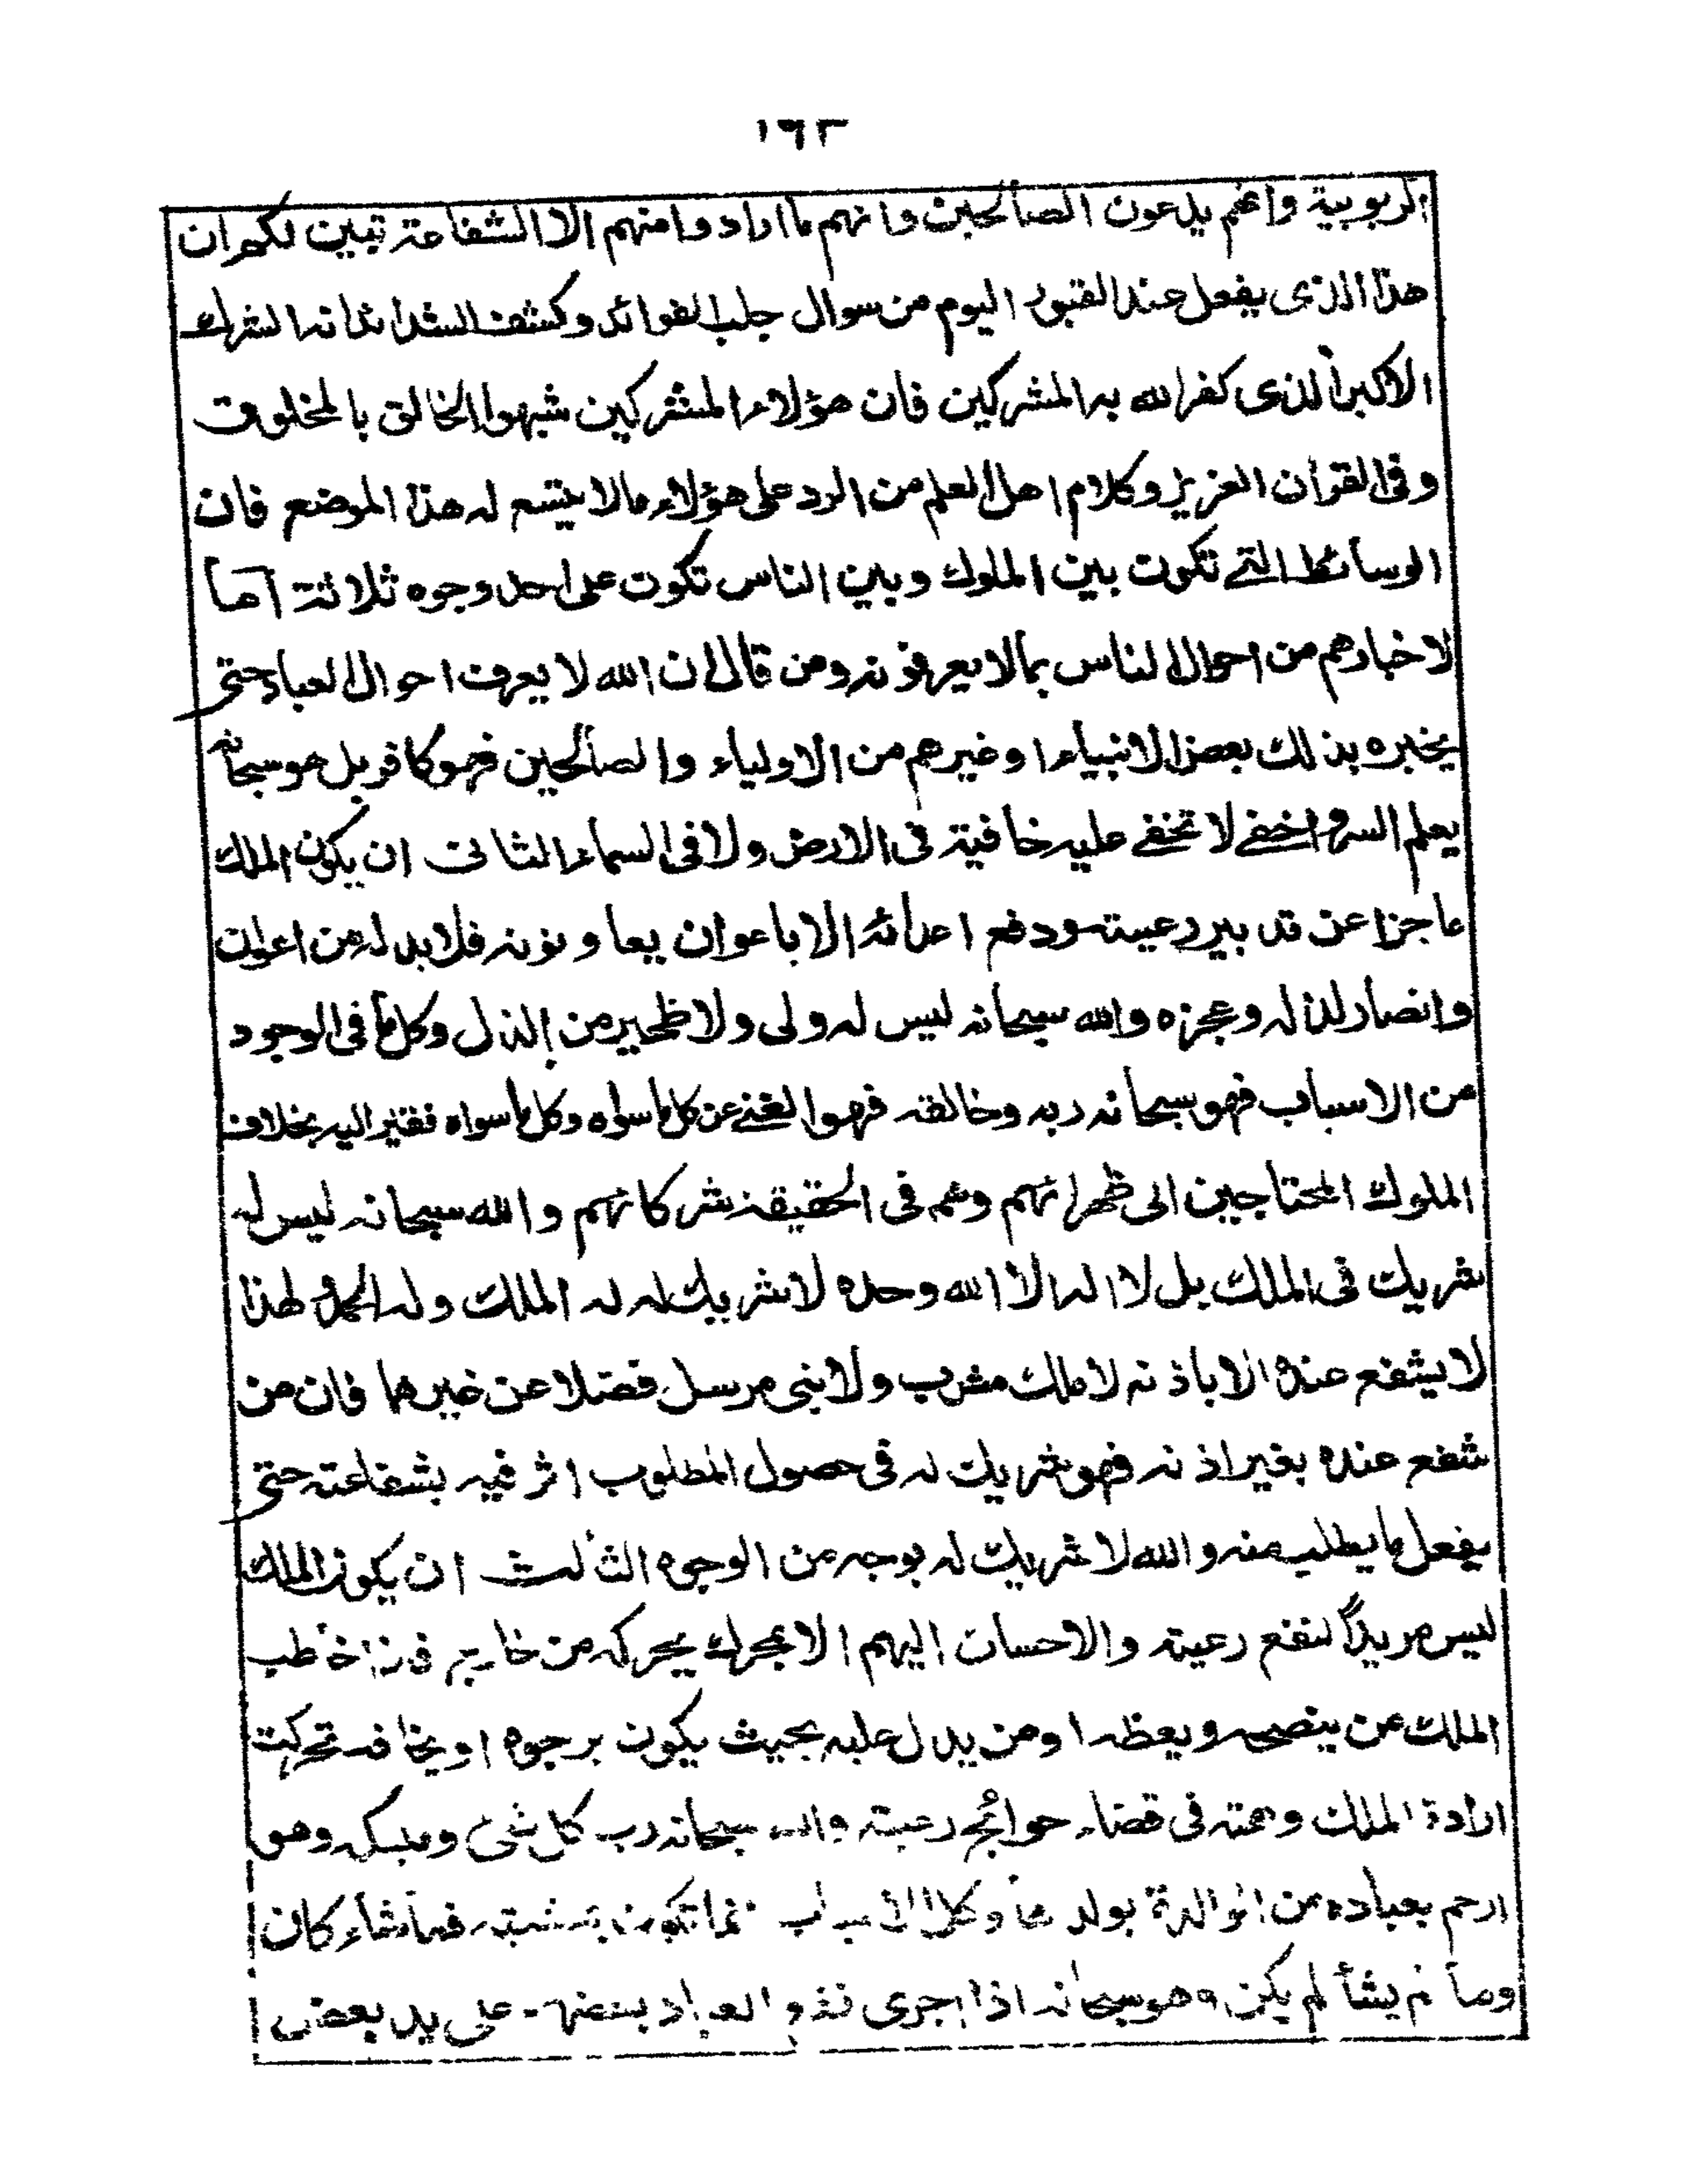 ١٦٣
الربوبية وانهم يدعون الصالحين وانهم ما ارادوا منهم الا الشفاعة تبين لكم ان
هذا الذى يفعل عند القبور اليوم من سوال جلب الفوائد وكشف الشدائد انه الشرك
الاكبر الذى كفر الله به المشركين فان هؤلاء المشركين شبهوا الخالق بالمخلوق
وفى القرأن العزيز وكلام اهل العلم من الرد على هؤلاء مالا يتسع له هذا الموضع فان
الوسائط التے تكون بين الملوك وبين الناس تكون على احد وجوه ثلاثة اما
لاخبارهم من احوال الناس بمالا يعرفونه ومن قال ان الله لا يعرف احوال العباد حتى
يخبره بذلك بعض الانبياء اوغيرهم من الاولياء والصالحين فهو كافر بل هو سبحانه
يعلم السر واخفے لا تخفے عليه خافية فى الارض ولا فى السماء الثانى ان يكون الملك
عاجزا عن تدبير رعيته ودفع اعدائه الا باعوان يعاونونه فلا بد له من اعوان
وانصار لذله وعجزه والله سبحانه ليس له ولى ولا ظهير من الذل وكل ما فى الوجود
من الاسباب فهو سبحانه ربه وخالقه فهو الغنے عن كل ما سواه وكل ما سواه فقير اليه بخلاف
الملوك المحتاجين الى ظهرائهم وهم فى الحقيقة شركائهم والله سبحانه ليس له
شريك فى الملك بل لا اله الا الله وحده لا شريك له له الملك وله الحمد لهذا
لا يشفع عنده الا باذنه لا ملك مقرب ولا نبى مرسل فضلا عن غيرهما فان من
شفع عنده بغير اذنه فهو شريك له فى حصول المطلوب اثر فيه بشفاعته حتى
يفعل ما يطلب منه والله لا شريك له بوجه من الوجوه الثالث ان يكون الملك
ليس مريدًا لنفع رعيته والاحسان اليهم الا بمحرك يحركه من خارج فاذا خاطب
الملك من ينصحه ويعظه اومن يدل عليه بحيث يكون يرجوه اويخافه تحركت
ارادة الملك وهمته فى قضاء حوائج رعيته والله سبحانه رب كل شئ ومليكه وهو
ارحم بعباده من الوالدة بولدها وكل الاسباب انما تكون بمشيته فما شاء كان
وما لم يشأ لم يكن وهو سبحانه اذا اجرى نفع العباد بعضهم على يد بعض